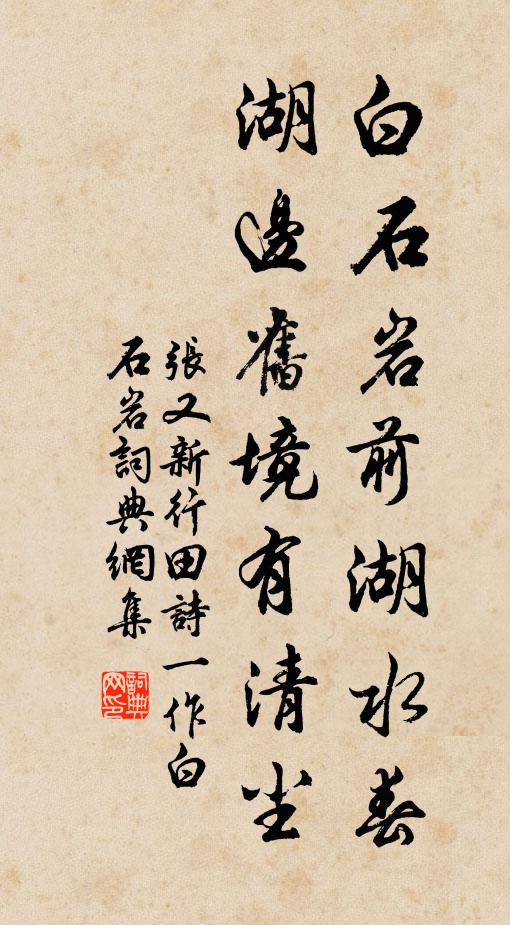 白石岩前湖水春
湖邊舊境有清塵
張又新行田詩一作白
石岩詞典網集
詞典網印